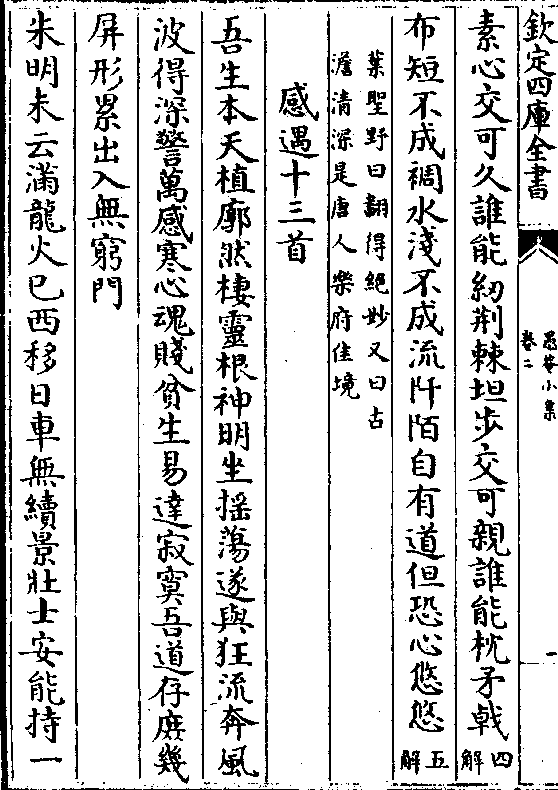 欽定四庫全書
愚菴小集
卷二
一
素心交可久誰能紉荆棘坦步交可親誰能枕矛戟四解
布短不成裯水淺不成流阡陌自有道但恐心悠悠五解
葉聖野曰翻得絶妙又曰古
澹清深是唐人樂府佳境
感遇十三首
吾生本天植廓然棲靈根神明坐揺蕩遂與狂流奔風
波得深警萬感寒心魂賤貧生易達寂寞吾道存庶幾
屏形累出入無窮門
朱明未云滿龍火已西移日車無續景壯士安能持一